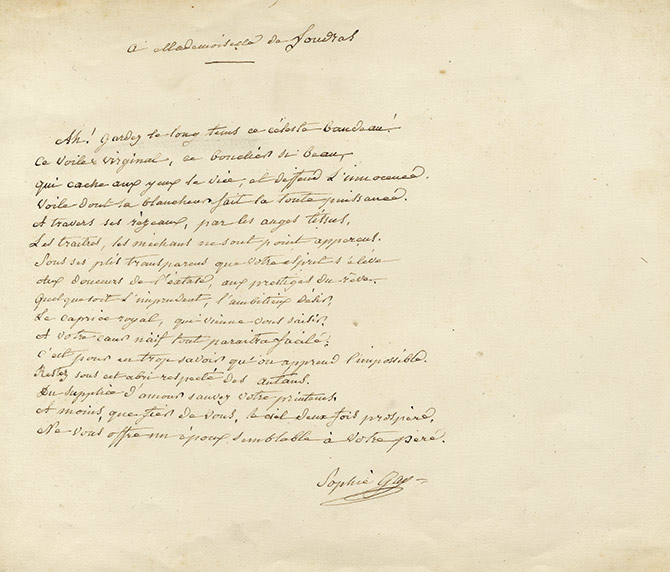 à Mademoiselle de Foudras
Ah! Gardez le long tems ce céleste bandeau!
Ce voile virginal, ce bouclier si beau,
qui cache aux yeux le vice, et deffend l'innocence.
Voile dont la blancheur fait la toute puissance.
A travers ses rézeaux, par les anges tissus,
Les traitres, les méchans ne sont point apperçus.
Sous ses plis transparens que votre esprit s'élève
Aux douceurs de l'extase, aux prestiges du rêve.
Quel que soit l'imprudent, l'ambitieux désir,
Le caprice royal, qui vienne vous saisir,
A votre cœur naïf tout paraitra facile;
C'est pour en trop savoir qu'on apprend l'impossible.
Restez sous cet abri respecté des autans.
Du supplice d'amour sauvez votre printems.
A moins, que fier de vous, le ciel deux fois prospère,
Ne vous offre un époux semblable à votre père.
Sophie Gay